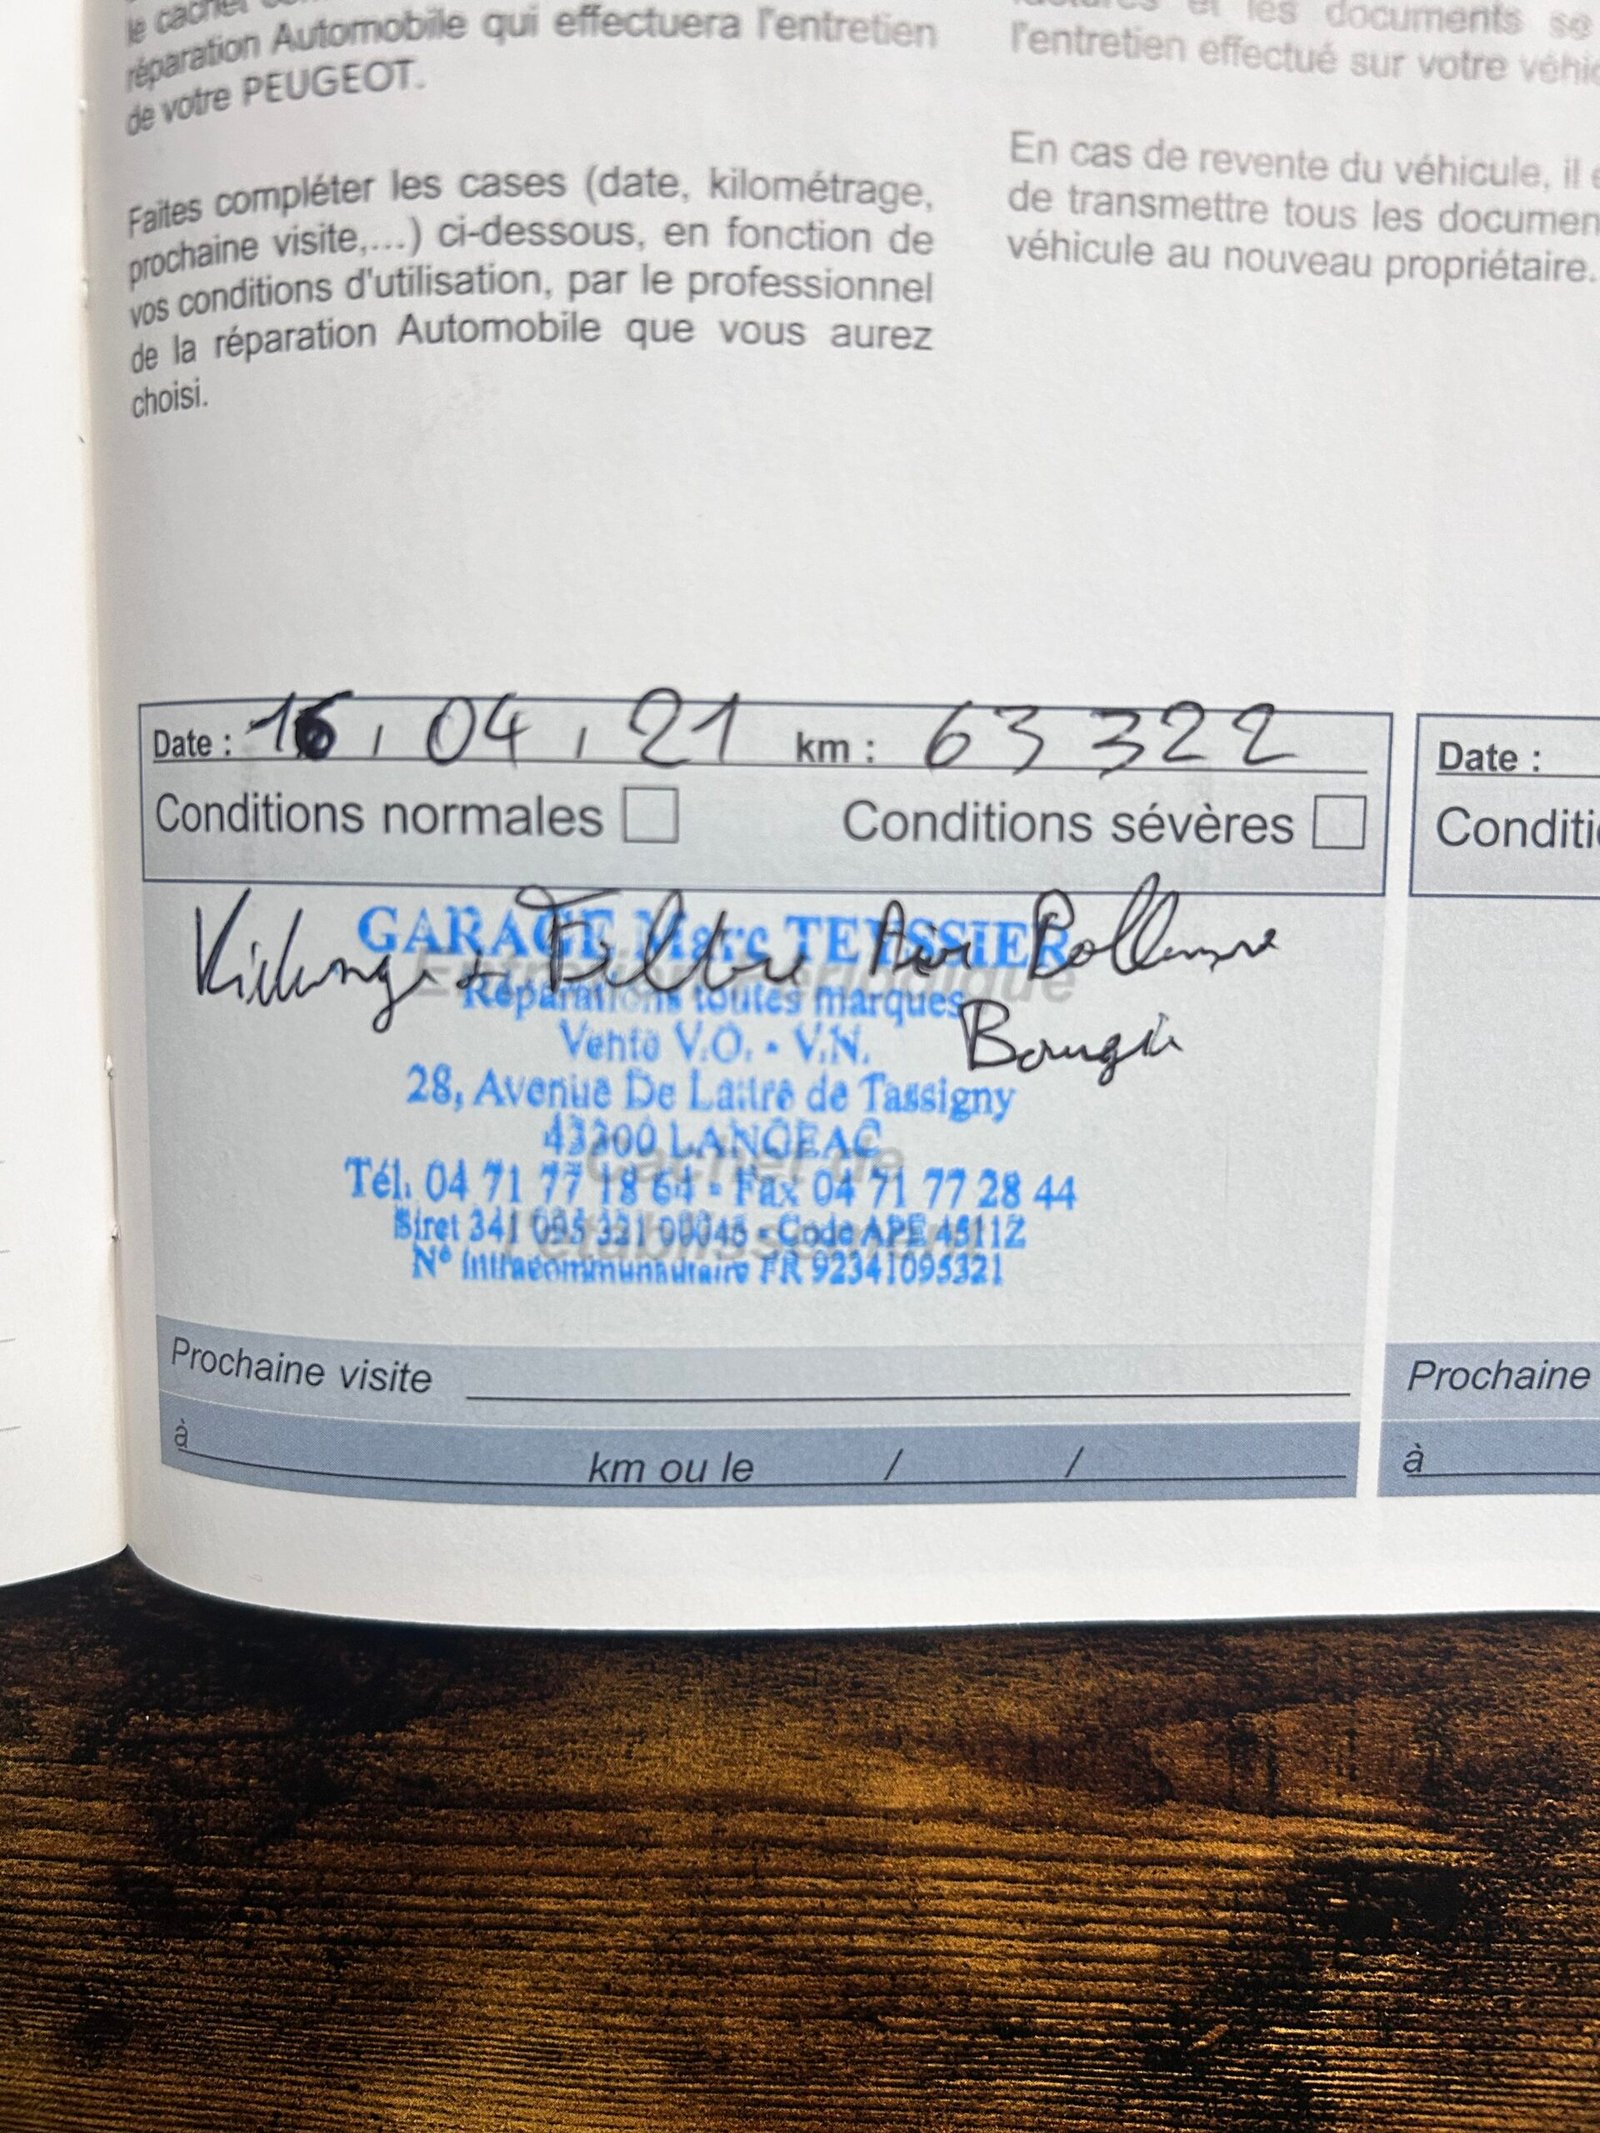 le cachet
réparation Automobile qui effectuera l'entretien
de votre PEUGEOT.
Faites compléter les cases (date, kilométrage,
prochaine visite,...) ci-dessous, en fonction de
vos conditions d'utilisation, par le professionnel
de la réparation Automobile que vous aurez
choisi.
et les documents se
l'entretien effectué sur votre véhic
En cas de revente du véhicule, il e
de transmettre tous les documen
véhicule au nouveau propriétaire.
Date : 16 / 04 / 21 km : 63 322
Conditions normales Conditions sévères
Vidange + Filtre Air Pollens
Bougie
GARAGE Marc TEYSSIER
Entretien périodique
Réparations toutes marques
Vente V.O. - V.N.
28, Avenue De Lattre de Tassigny
43300 LANGEAC
Cachet de
Tél. 04 71 77 18 64 - Fax 04 71 77 28 44
l'établissement
Siret 341 095 321 00048 - Code APE 4511Z
N° Intracommunautaire FR 92341095321
Prochaine visite
à km ou le / /
Date :
Conditi
Prochaine
à